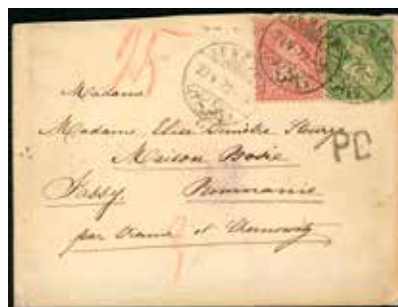 25
GENÈVE
Madame
Madame Elise Démètre Stourza
Maison Bosie
PD
Jassy. Roumanie
par Vienne et Czernowitz